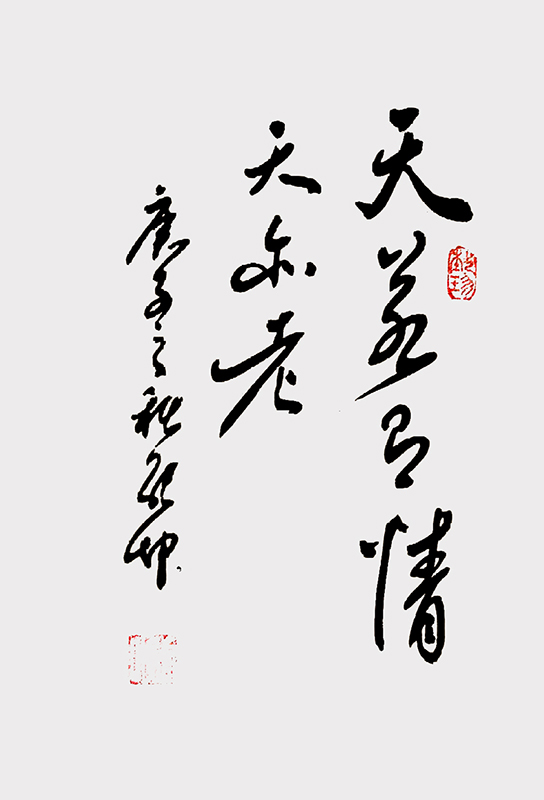 天若有情
天亦老
庚子之秋